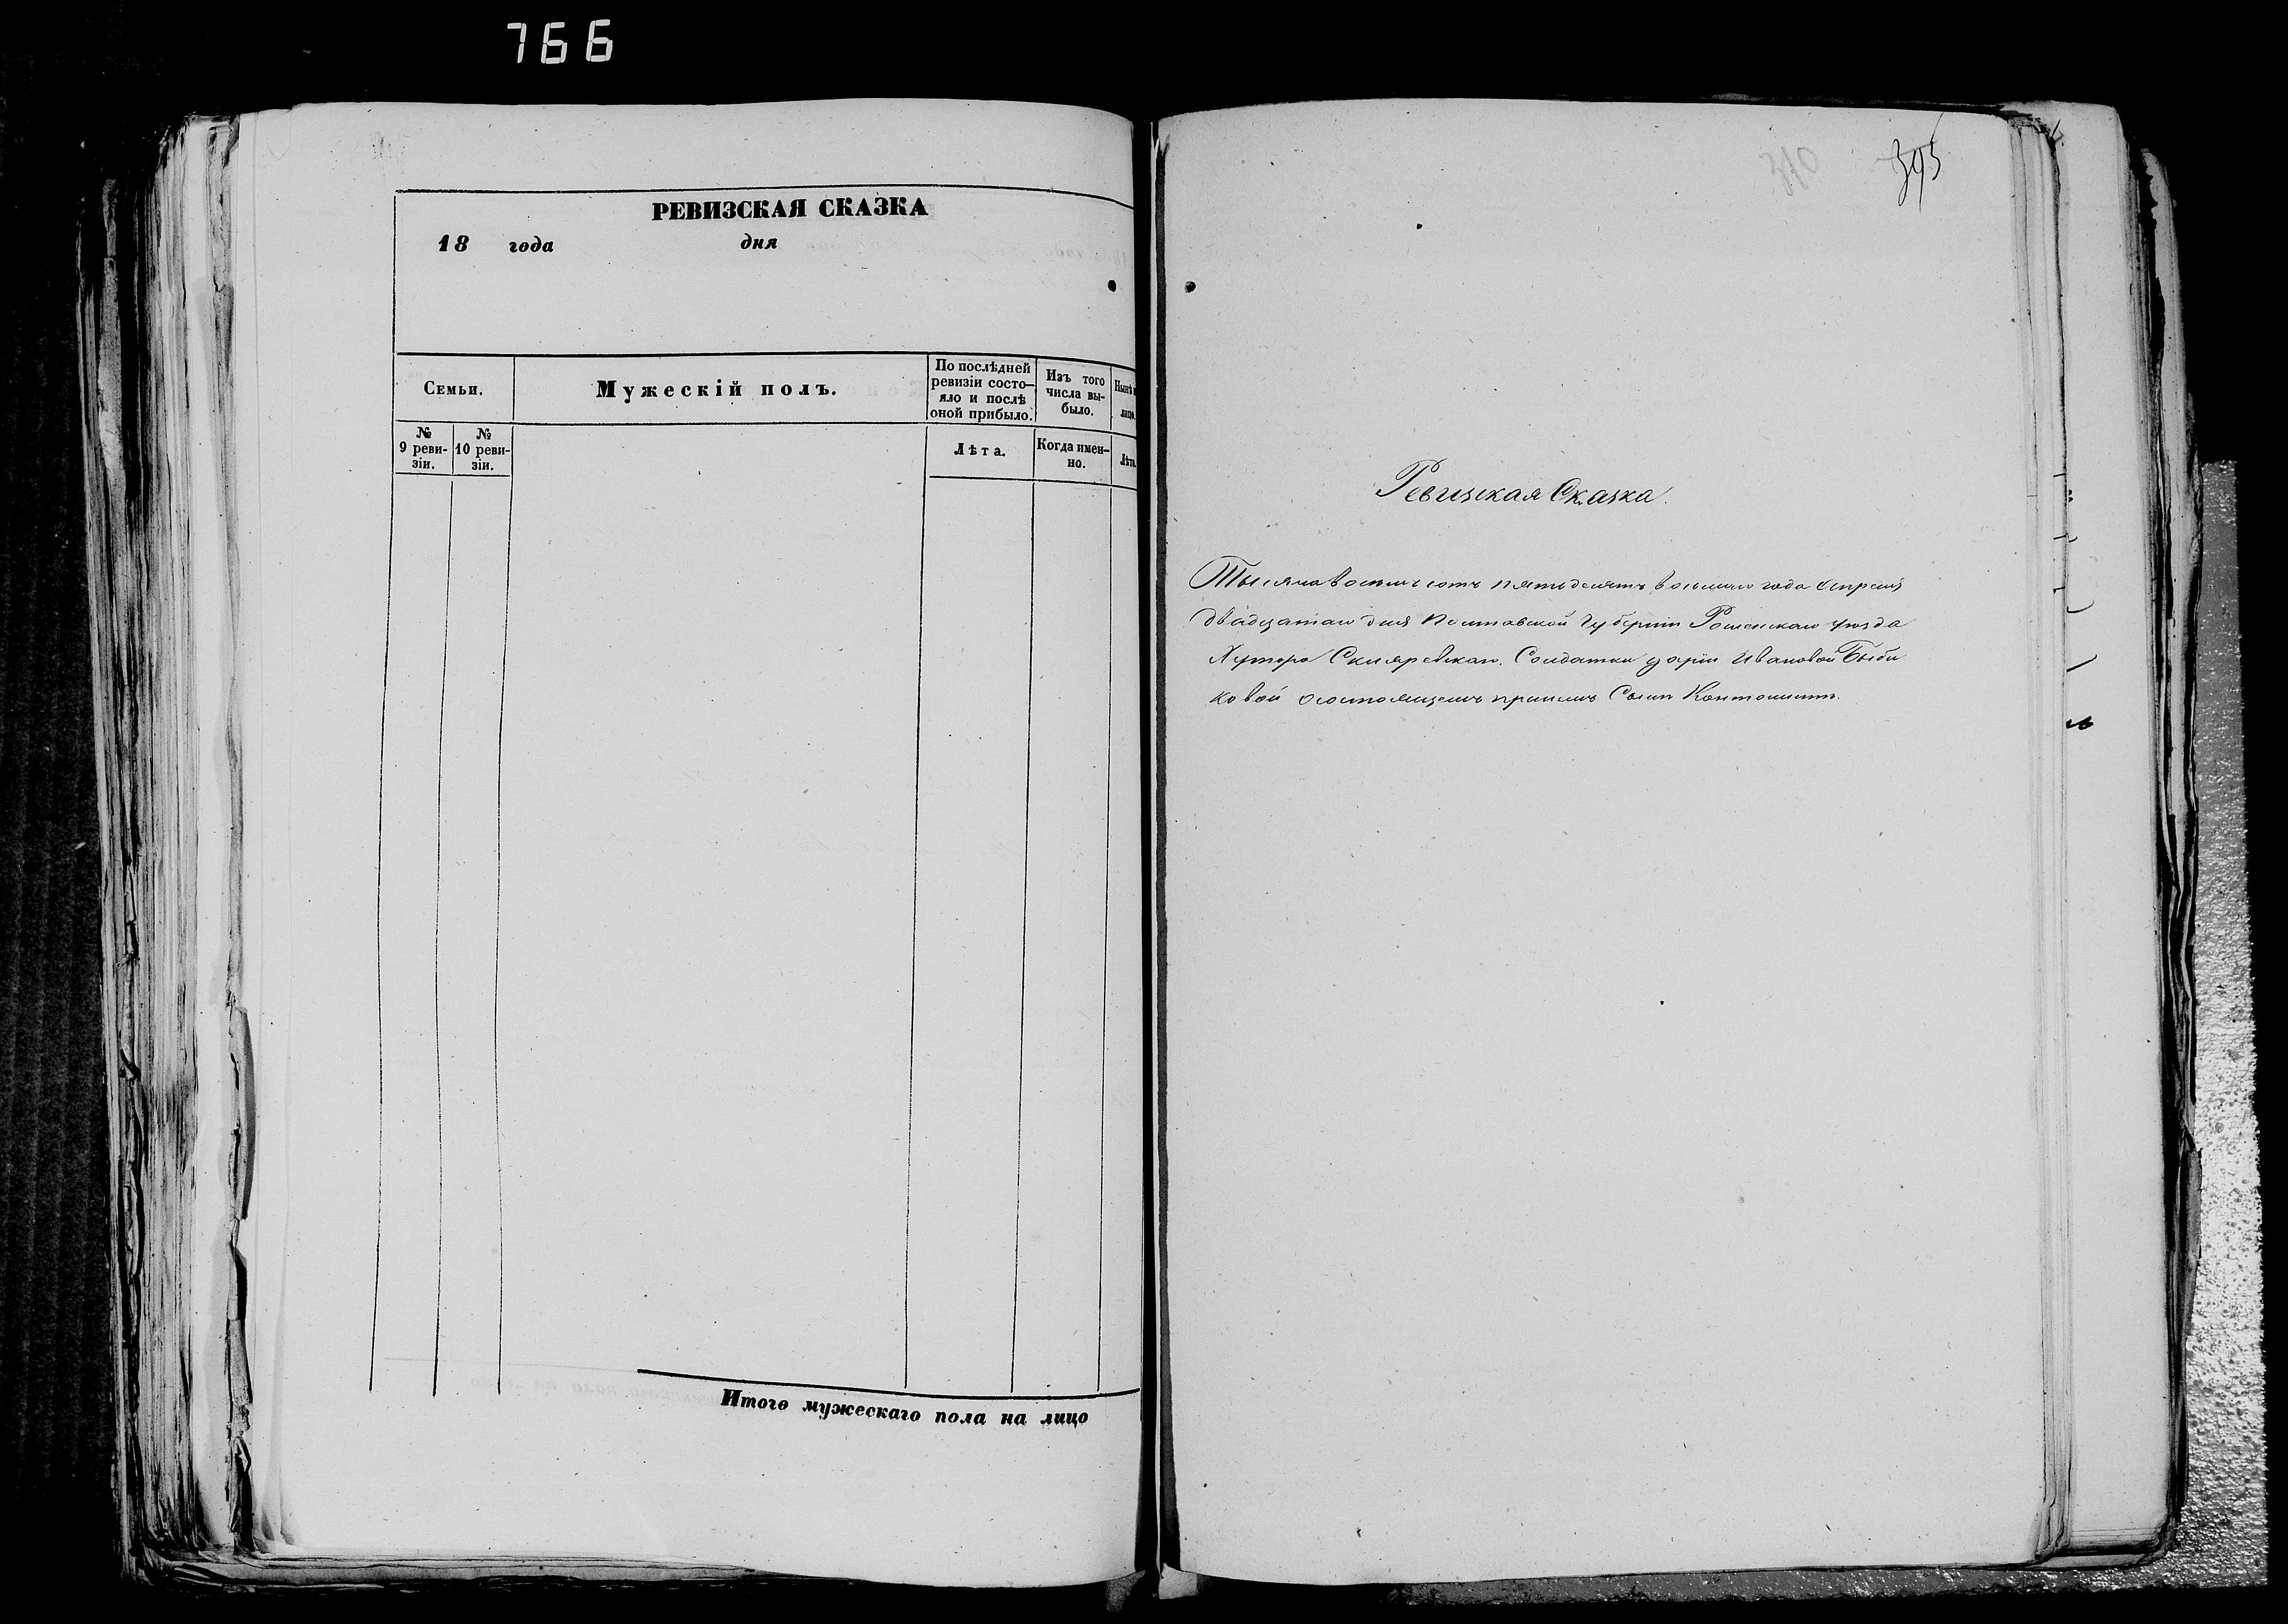 766
РЕВИЗСКАЯ СКАЗКА
18 года дня
Семьи.
Мужескій полъ.
По послѣдней
ревизіи состо-
яло и послѣ
оной прибыло.
Изъ того
числа вы-
было.
Нынѣ
лицо.
№
9 реви-
зіи.
№
10 реви-
зіи.
Лѣта.
Когда имен-
но.
Лѣта.
Итого мужескаго пола на лицо
370 395
Ревизская Сказка.
Тысяча восемь сотъ пятьдесятъ восьмаго года Апреля
двадцатаго дня Полтавской Губерніи Роменскаго уезда
Хутора Скляревскаго. Солдатки Дарьи Ивановой Быби
ковой о состоящемъ Сыне